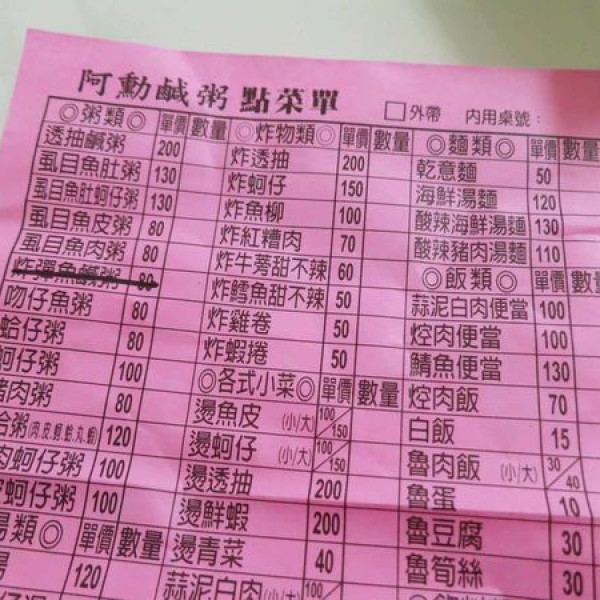 阿勳鹹粥 點菜單
□外帶 內用桌號：
◎粥類◎ 單價 數量
透抽鹹粥 200
虱目魚肚粥 130
虱目魚肚蚵仔粥 130
虱目魚皮粥 80
虱目魚肉粥 80
炸彈魚鹹粥 80
吻仔魚粥 80
蛤仔粥 80
蚵仔粥 100
豬肉粥 80
粥(肉,皮,蚵,蛤,丸,蝦) 120
肉蚵仔粥 100
蚵仔粥 100
湯類◎ 單價 數量
湯 120
◎炸物類◎ 單價 數量
炸透抽 200
炸蚵仔 150
炸魚柳 100
炸紅糟肉 70
炸牛蒡甜不辣 60
炸鱈魚甜不辣 50
炸雞卷 50
炸蝦捲 50
◎各式小菜◎ 單價 數量
燙魚皮 (小/大) 100/150
燙蚵仔 (小/大) 100/150
燙透抽 200
燙鮮蝦 200
燙青菜 40
蒜泥白肉(小/大) 100/
◎麵類◎ 單價 數量
乾意麵 50
海鮮湯麵 120
酸辣海鮮湯麵 130
酸辣豬肉湯麵 110
◎飯類◎ 單價 數量
蒜泥白肉便當 100
焢肉便當 100
鯖魚便當 130
焢肉飯 70
白飯 15
魯肉飯 (小/大) 30/40
魯蛋 10
魯豆腐 30
魯筍絲 30